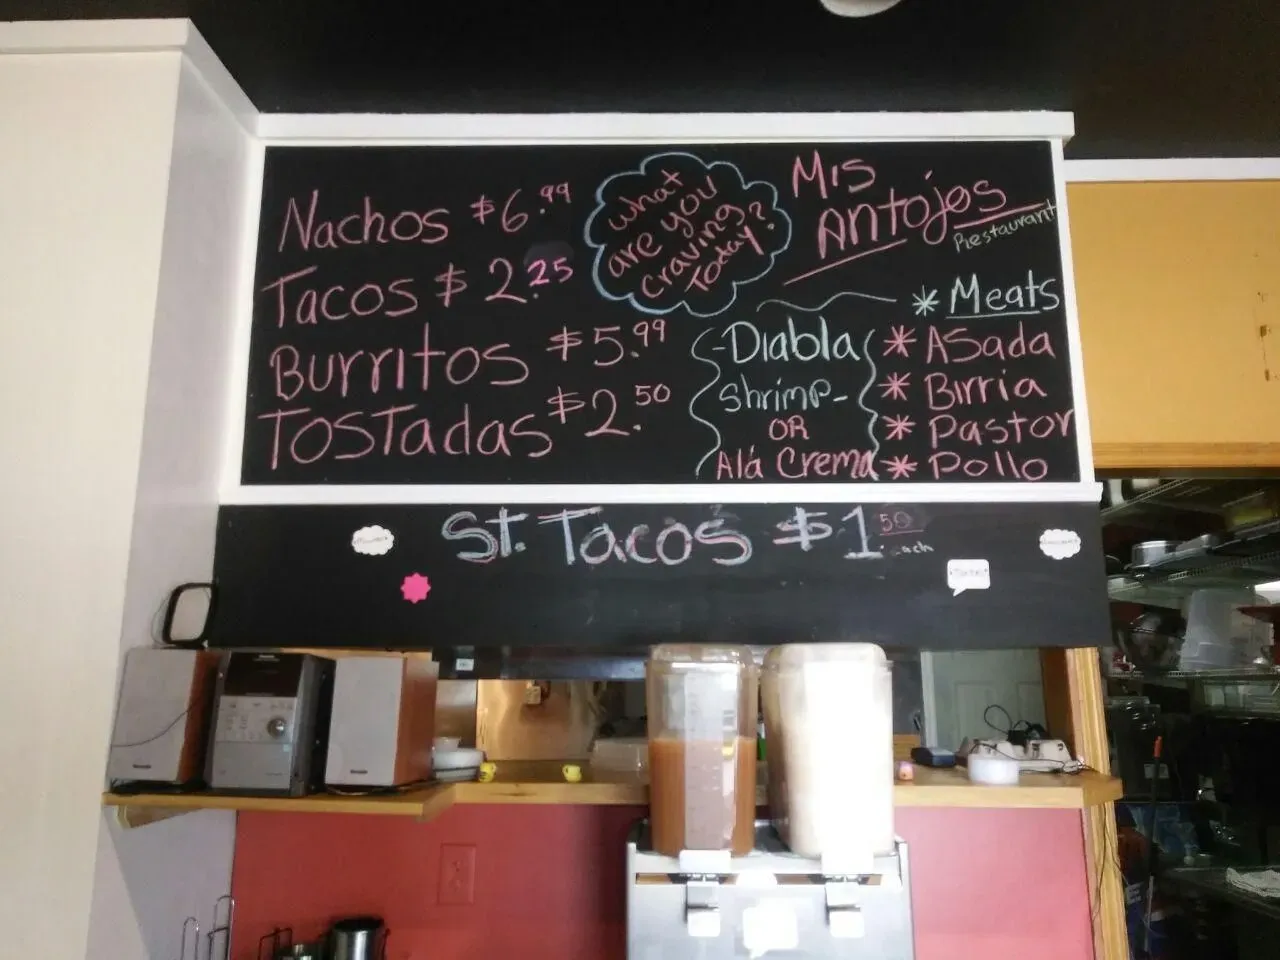 Nachos $6.99
Tacos $2.25
Burritos $5.99
Tostadas $2.50
What
are you
craving
Today?
Mis
Antojos
Restaurant
* Meats
* Asada
* Birria
* Pastor
* Pollo
-Diabla
Shrimp-
OR
Alá Crema
St. Tacos $1.50